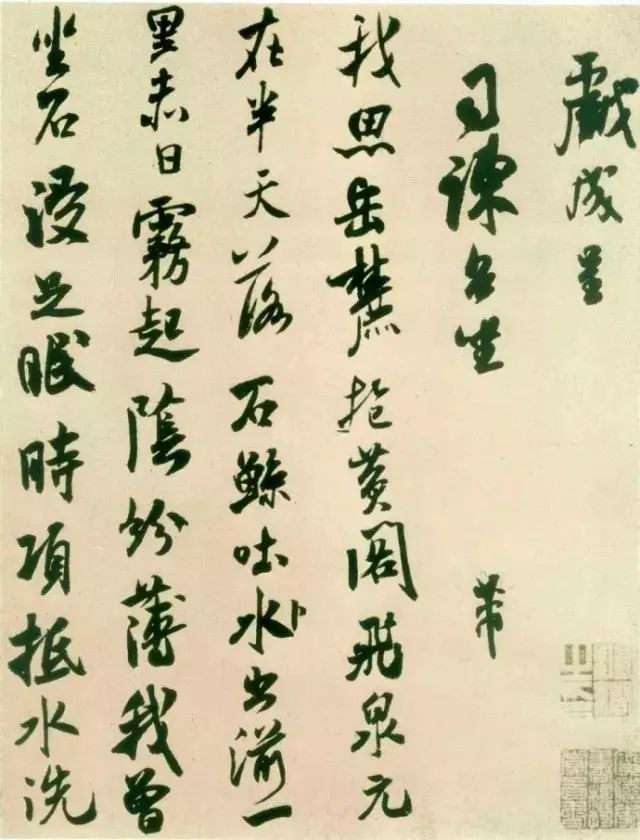 戲成呈
司諫台坐 芾
我思岳麓抱黃閣飛泉元
在半天落石鯨吐水出湔一
里赤日霧起隂紛薄我曾
坐石浸足眠時項抵水洗